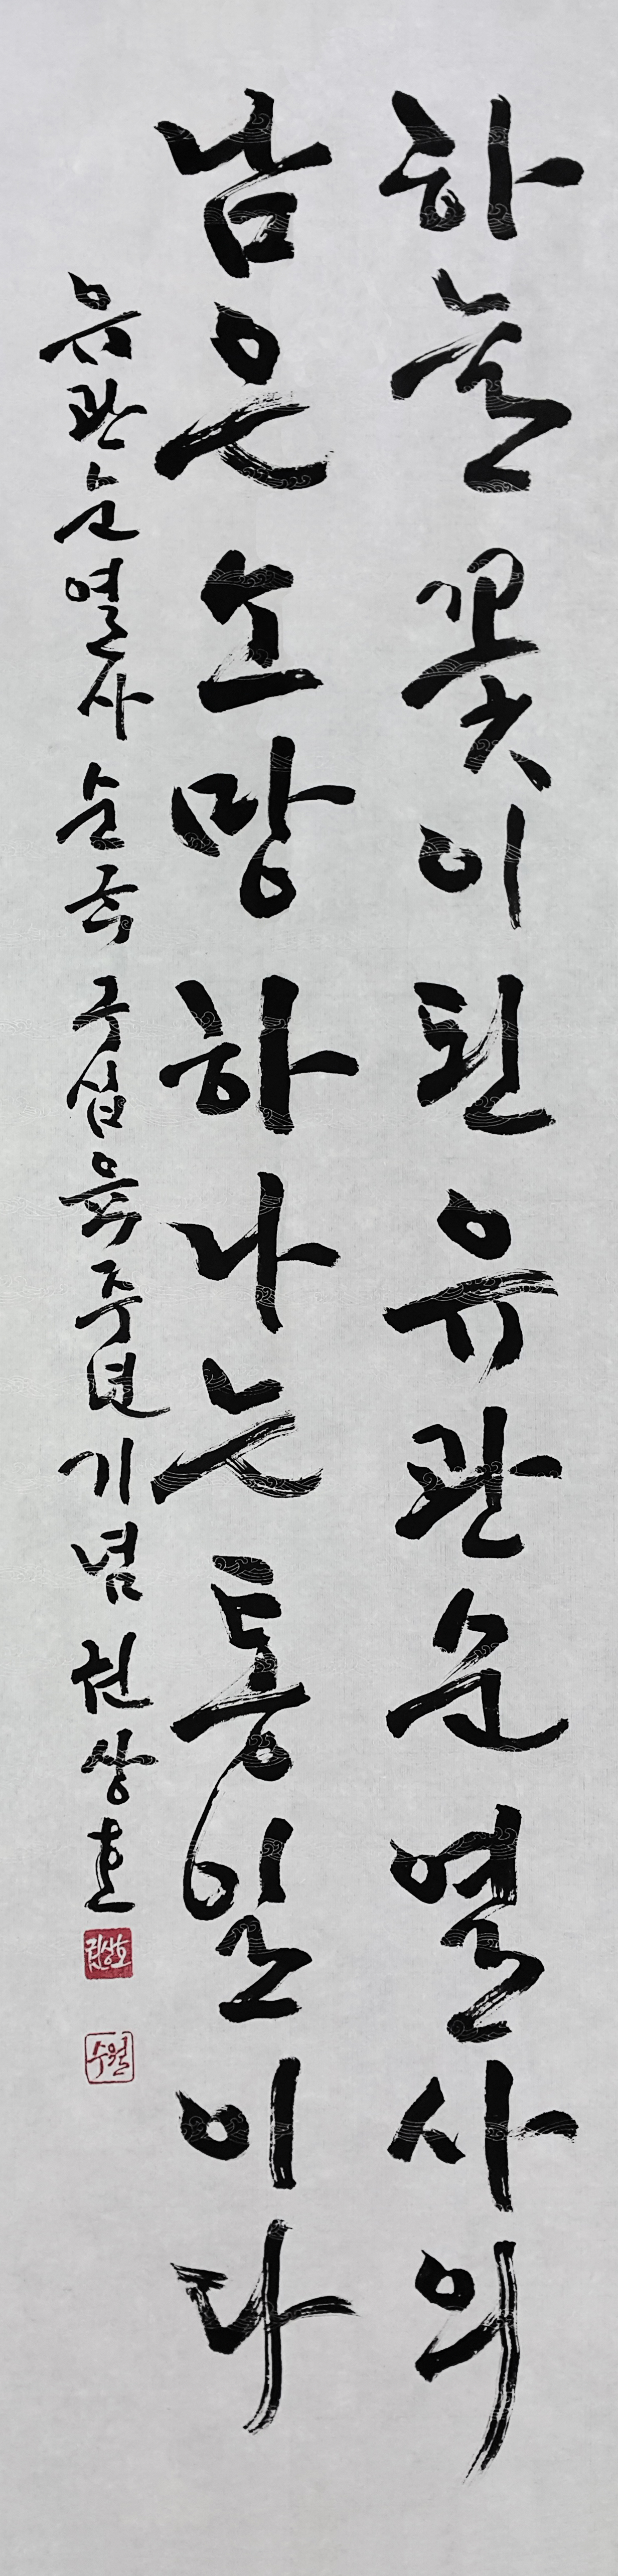 하늘 꽃이 된 유관순 열사의
남은 소망 하나는 통일이다
유관순 열사 순국 구십육 주년 기념 천상호
천상호
수월